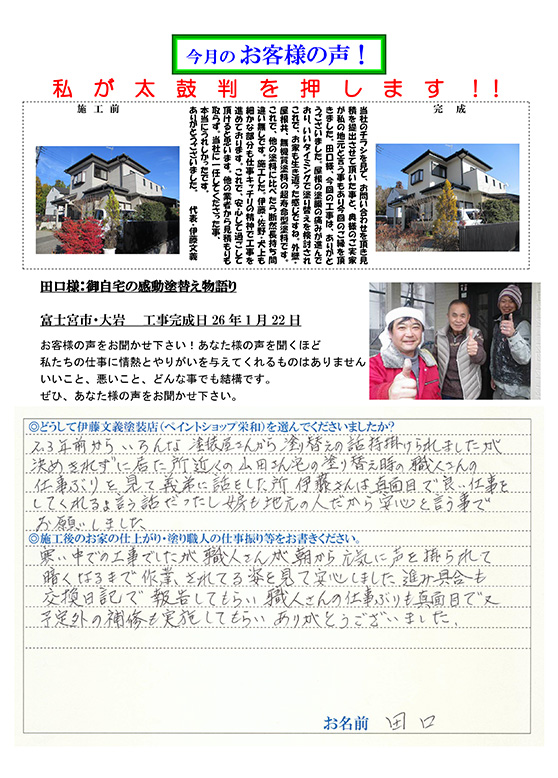 今月の お客様の声！
私が太鼓判を押します！！
施工前
完成
当社のチラシを見て、お問い合わせを頂き見
積を提出させて頂いた事と、奥様のご実家
が私の地元と言う事もあり今回のご縁を頂
きました。田口様、今回の工事は、ありがと
うございました。屋根の塗膜の痛みが進んで
おり、いいタイミングで塗り替えを検討され
これで、お家も生き返った感じですね。外壁・
屋根共、無機質塗料の超寿命型塗料です。
これで、他の塗料に比べたら断然長持ち間
違い無しです。施工した、伊藤・佐野・犬上も
細かな部分も仕事キッチリの精神で工事を
進めております。これで、安心して過ごして
頂けると思います。他の業者から見積もりも
取らず、当社に一任してくださった事、
本当にうれしかったです。
ありがとうございました。　代表・伊藤文義
田口様：御自宅の感動塗替え物語り
富士宮市・大岩　工事完成日26年1月22日
お客様の声をお聞かせ下さい！あなた様の声を聞くほど
私たちの仕事に情熱とやりがいを与えてくれるものはありません
いいこと、悪いこと、どんな事でも結構です。
ぜひ、あなた様の声をお聞かせ下さい。
◎どうして伊藤文義塗装店（ペイントショップ栄和）を選んでくださいましたか？
2、3年前から いろんな 塗装屋さんから 塗り替えの話 持掛けられましたが
決めきれずに居た所 近くの 山田さん宅の 塗り替え時の 職人さんの
仕事ぶりを 見て 義弟に 話をした所 伊藤さんは 真面目で 良い仕事を
してくれると言う話だったし 女房も 地元の人だから 安心と言う事で
お願いしました
◎施工後のお家の仕上がり・塗り職人の仕事振り等をお書きください。
寒い中での工事でしたが 職人さんが 朝から 元気に声を掛られて
暗くなるまで 作業、されてる 姿を 見て 安心しました 進み具合も
交換日記で 報告してもらい 職人さんの仕事ぶりも 真面目で又
予定外の補修も 実施してもらい ありがとうございました。
お名前　田口